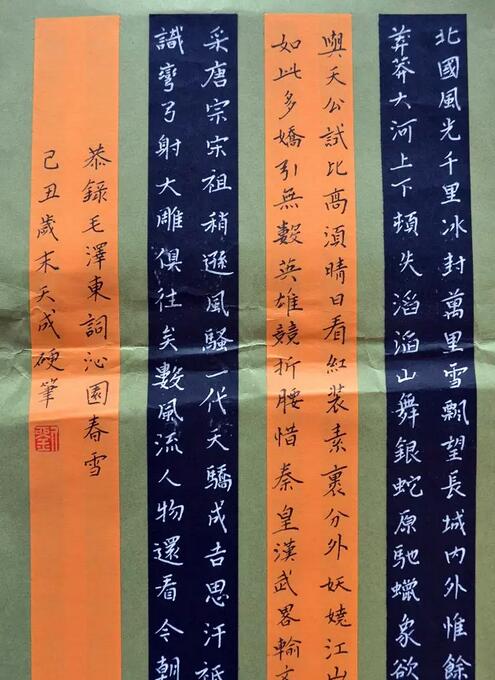 北國風光千里冰封萬里雪飄望長城內外惟餘
莽莽大河上下頓失滔滔山舞銀蛇原馳蠟象欲
與天公試比高湏晴日看紅裝素裹分外妖嬈江山
如此多嬌引無數英雄競折腰惜秦皇漢武畧輸文
采唐宗宋祖稍遜風騷一代天驕成吉思汗祗
識彎弓射大雕俱往矣數風流人物還看今朝
恭錄毛澤東詞沁園春雪
己丑歲末天成硬筆